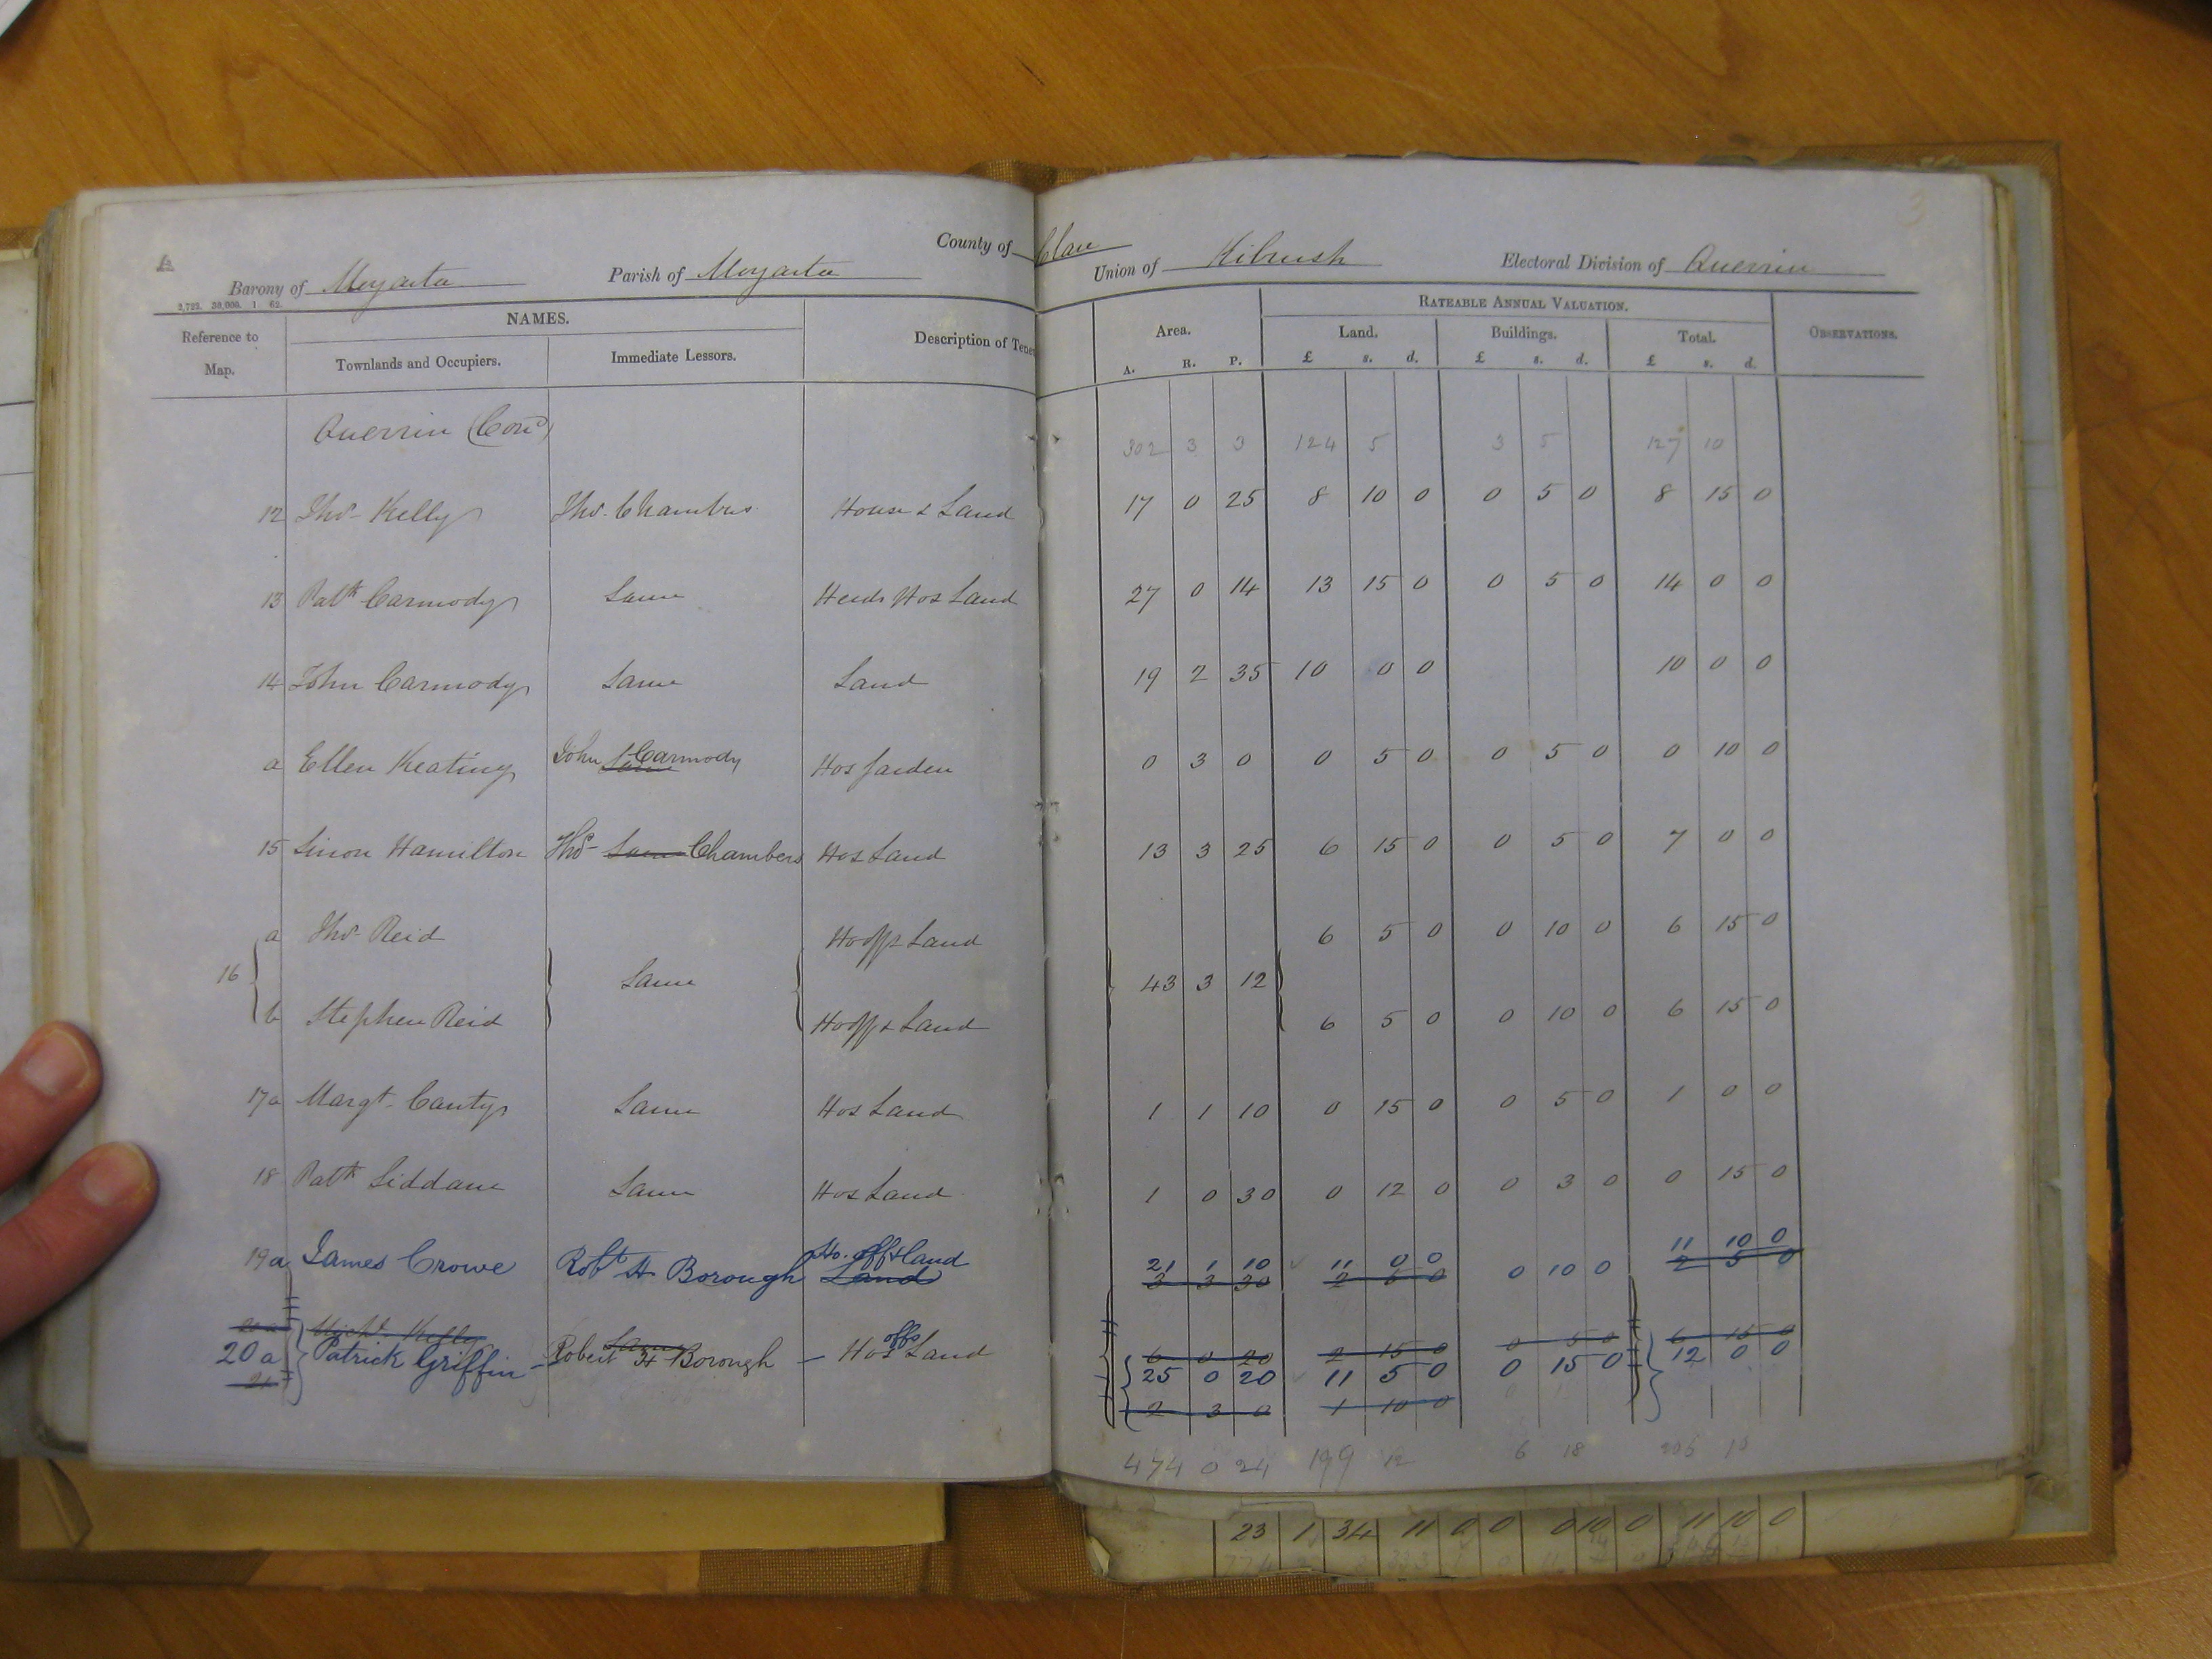 3
County of Clare
Barony of Moyarta Parish of Moyarta Union of Kilrush Electoral Division of Querrin
2,722. 50,000. 1. 62.
Reference to Map. NAMES. Description of Tene Area. RATEABLE ANNUAL VALUATION. OBSERVATIONS.
Townlands and Occupiers. Immediate Lessors. Land. Buildings. Total.
A. R. P. £ s. d. £ s. d. £ s. d.
Querrin (Cond) 302 3 3 124 5 3 5 127 10
12 Thos Kelly Thos. Chambers House & Land 17 0 25 8 10 0 0 5 0 8 15 0
13 Patk Carmody Same Herds Hos Land 27 0 14 13 15 0 0 5 0 14 0 0
14 John Carmody Same Land 19 2 35 10 0 0 10 0 0
a Ellen Keating John Carmody Same Hos Garden 0 3 0 0 5 0 0 5 0 0 10 0
15 Simon Hamilton Thos Same Chambers Hos Land 13 3 25 6 15 0 0 5 0 7 0 0
a Thos Reid Ho offs Land 6 5 0 0 10 0 6 15 0
16 Same 43 3 12
b Stephen Reid Ho offs Land 6 5 0 0 10 0 6 15 0
17a Margt. Canty Same Hos Land 1 1 10 0 15 0 0 5 0 1 0 0
18 Patk Liddane Same Hos Land 1 0 30 0 12 0 0 3 0 0 15 0
19a James Crowe Robt H Borough Ho. off & land 21 1 10 11 0 0 0 10 0 11 10 0
Land 3 3 30 2 5 0 2 5 0
20a Michl. Kelly Same 6 0 20 2 15 0 0 5 0 6 15 0
20a Patrick Griffin Robert H Borough — Hos offs Land 25 0 20 11 5 0 0 15 0 12 0 0
21 2 3 0 1 10 0
474 0 24 199 12 6 18 206 10
23 1 34 11 0 0 0 10 0 11 10 0